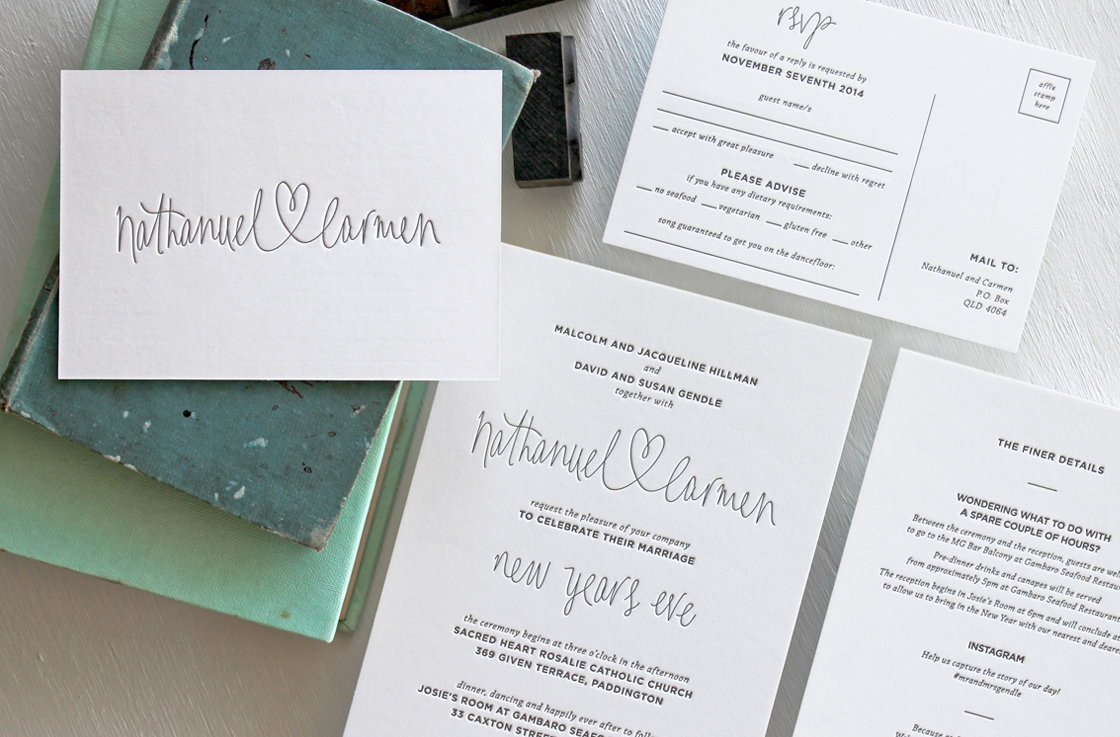 nathanuel carmen
rsvp
the favour of a reply is requested by
NOVEMBER SEVENTH 2014
guest name/s
accept with great pleasure
decline with regret
PLEASE ADVISE
if you have any dietary requirements:
no seafood vegetarian gluten free other
song guaranteed to get you on the dancefloor:
affix
stamp
here
MAIL TO:
Nathanuel and Carmen
P.O. Box
QLD 4064
MALCOLM AND JACQUELINE HILLMAN
and
DAVID AND SUSAN GENDLE
together with
nathanuel carmen
request the pleasure of your company
TO CELEBRATE THEIR MARRIAGE
new years eve
the ceremony begins at three o'clock in the afternoon
SACRED HEART ROSALIE CATHOLIC CHURCH
369 GIVEN TERRACE, PADDINGTON
dinner, dancing and happily ever after to follow
JOSIE'S ROOM AT GAMBARO SEAFO
33 CAXTON STREET
THE FINER DETAILS
WONDERING WHAT TO DO WITH
A SPARE COUPLE OF HOURS?
Between the ceremony and the reception, guests are wel
to go to the MG Bar Balcony at Gambaro Seafood Restaur
Pre-dinner drinks and canapes will be served
from approximately 5pm at Gambaro Seafood Restaurant
The reception begins in Josie's Room at 6pm and will conclude a
to allow us to bring in the New Year with our nearest and deare
INSTAGRAM
Help us capture the story of our day!
#mrandmrsgendle
Because